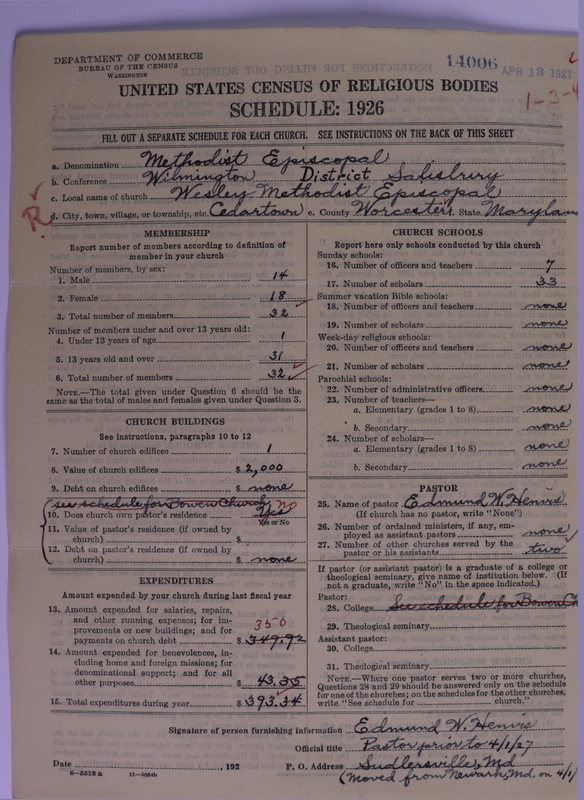 DEPARTMENT OF COMMERCE
BUREAU OF THE CENSUS
WASHINGTON
14006 APR 13 1927
UNITED STATES CENSUS OF RELIGIOUS BODIES
1-3-4
SCHEDULE: 1926
FILL OUT A SEPARATE SCHEDULE FOR EACH CHURCH. SEE INSTRUCTIONS ON THE BACK OF THIS SHEET
a. Denomination Methodist Episcopal
b. Conference Wilmington District Salisbury
c. Local name of church Wesley Methodist Episcopal
R
d. City, town, village, or township, etc. Cedartown e. County Worcester f. State Maryland
MEMBERSHIP
Report number of members according to definition of
member in your church
Number of members, by sex:
1. Male 14
2. Female 18
3. Total number of members 32
Number of members under and over 13 years old:
4. Under 13 years of age 1
5. 13 years old and over 31
6. Total number of members 32
NOTE.—The total given under Question 6 should be the
same as the total of males and females given under Question 3.
CHURCH BUILDINGS
See instructions, paragraphs 10 to 12
7. Number of church edifices 1
8. Value of church edifices $ 2,000
9. Debt on church edifices $ none
see schedule for Bowen Church no
10. Does church own pastor's residence Yes
Yes or No
11. Value of pastor's residence (if owned by
church) $
12. Debt on pastor's residence (if owned by
church) $ none
EXPENDITURES
Amount expended by your church during last fiscal year
13. Amount expended for salaries, repairs,
and other running expenses; for im-
provements or new buildings; and for
payments on church debt $ 349.92
350
14. Amount expended for benevolences, in-
cluding home and foreign missions; for
denominational support; and for all
other purposes $ 43.35
15. Total expenditures during year $ 393.34
CHURCH SCHOOLS
Report here only schools conducted by this church
Sunday schools:
16. Number of officers and teachers 7
17. Number of scholars 33
Summer vacation Bible schools:
18. Number of officers and teachers none
19. Number of scholars none
Week-day religious schools:
20. Number of officers and teachers none
21. Number of scholars none
Parochial schools:
22. Number of administrative officers none
23. Number of teachers—
a. Elementary (grades 1 to 8) none
b. Secondary none
24. Number of scholars—
a. Elementary (grades 1 to 8) none
b. Secondary none
PASTOR
25. Name of pastor Edmund W. Henvis
(If church has no pastor, write "None")
26. Number of ordained ministers, if any, em-
ployed as assistant pastors none
27. Number of other churches served by the
pastor or his assistants two
If pastor (or assistant pastor) is a graduate of a college or
theological seminary, give name of institution below. (If
not a graduate, write "No" in the space indicated.)
Pastor:
28. College See schedule for Bowen Ch
29. Theological seminary
Assistant pastor:
30. College
31. Theological seminary
NOTE.—Where one pastor serves two or more churches,
Questions 28 and 29 should be answered only on the schedule
for one of the churches; on the schedules for the other churches,
write "See schedule for church."
Signature of person furnishing information Edmund W. Henvis
Official title Pastor prior to 4/1/27
Date , 192 P. O. Address Sudlersville, Md
(Moved from Newark, Md on 4/1/
8—5518 a 11—9564b